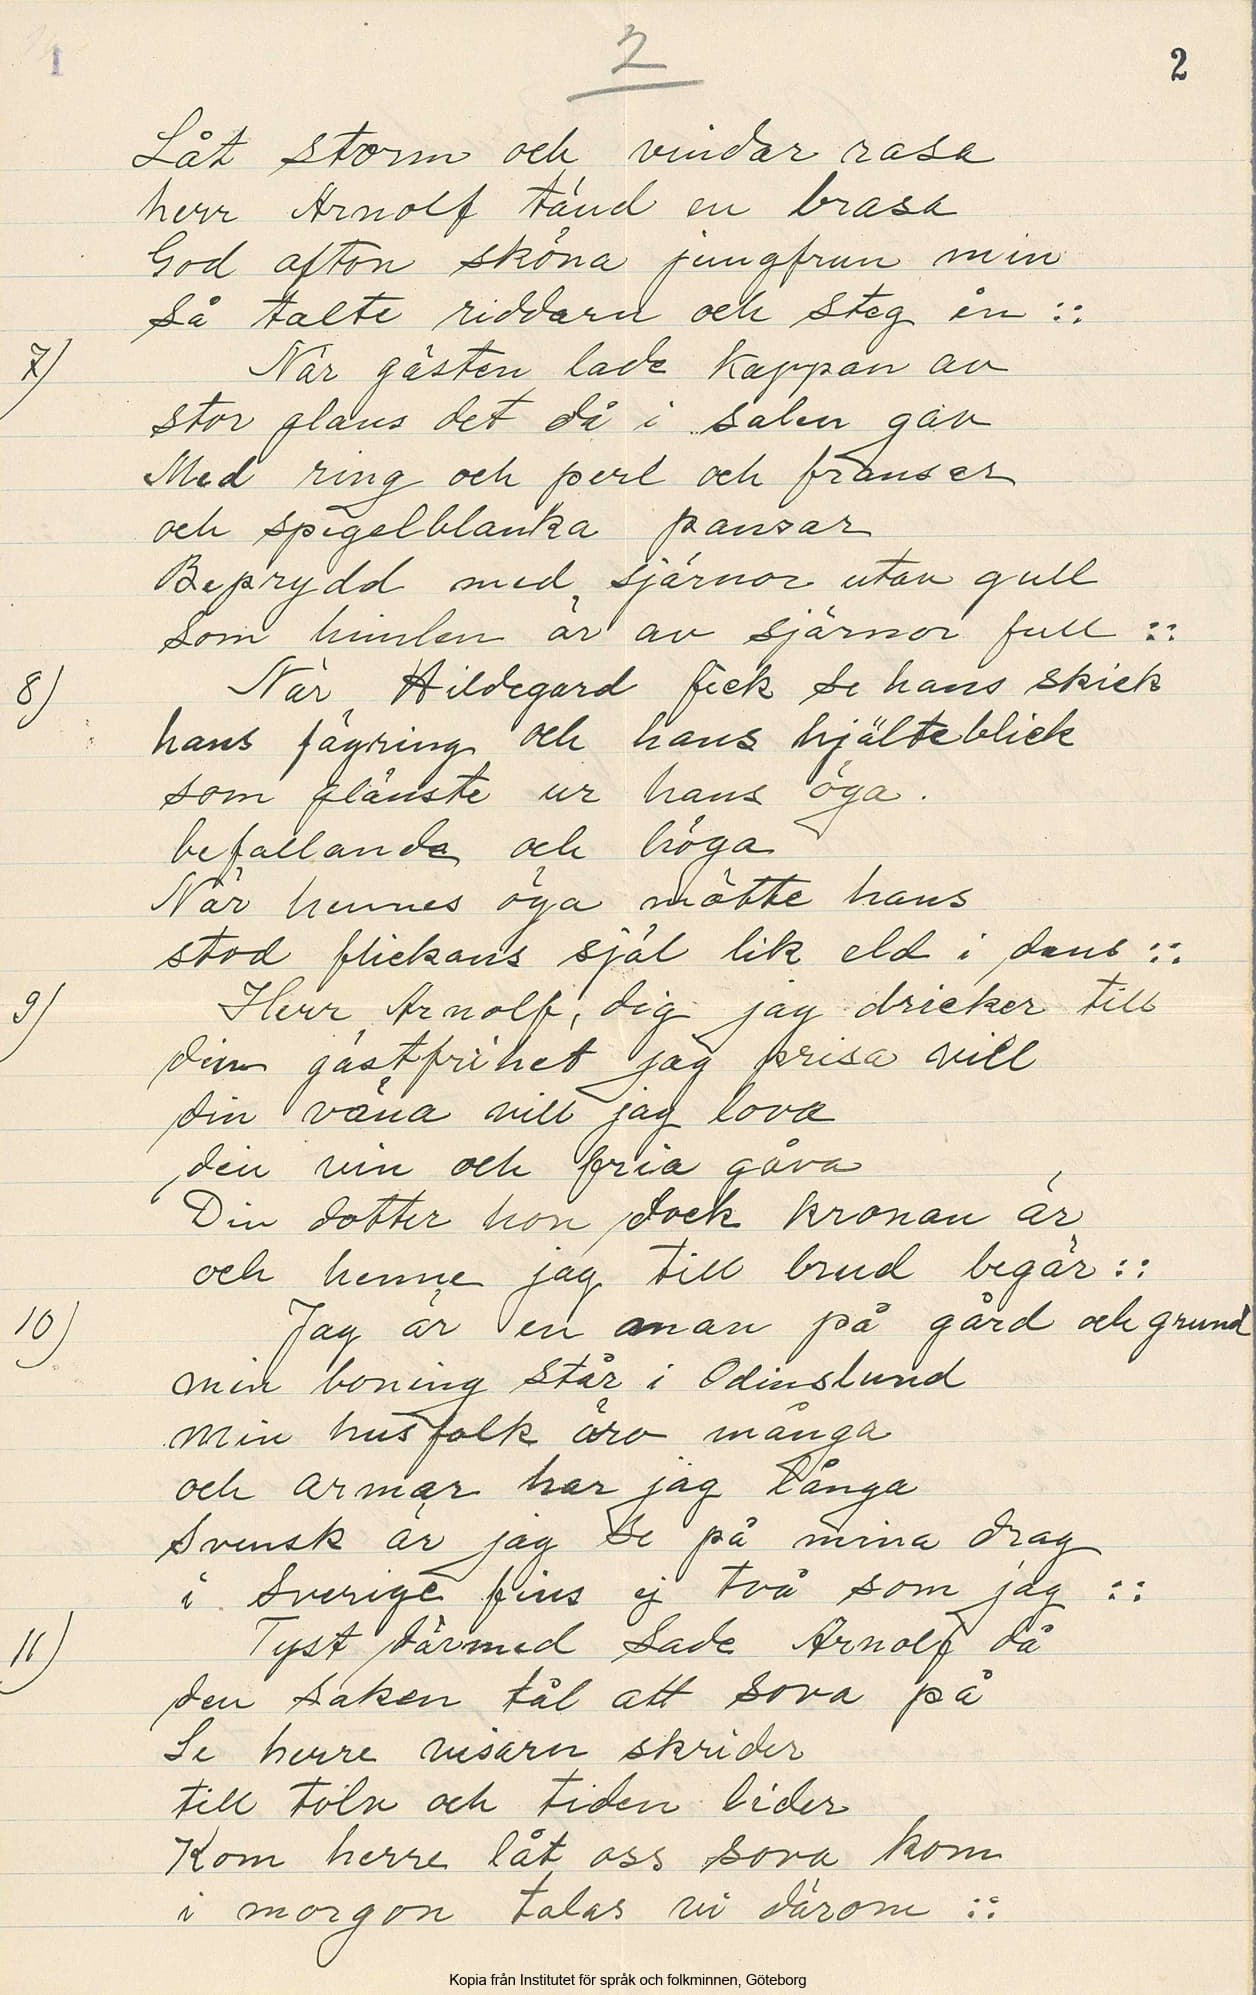 1
2
2
Låt storm och vindar rasa
herr Arnolf tänd en brasa
God afton sköna jungfrun min
Så talte riddarn och steg in ::
7)
När gästen lade kappan av
stor glans det då i salen gav
Med ring och perl och franser
och spegelblanka pansar
Beprydd med sjärnor utav gull
Som himlen är av sjärnor full ::
8)
När Hildegard fick se hans skick
hans fägring och hans hjälteblick
som glänste ur hans öga.
befallande och höga
När hennes öga mötte hans
stod flickans själ lik eld i dans ::
9)
Herr Arnolf, dig jag dricker till
din gästfrihet jag prisa vill
din väna vill jag lova
din vin och fria gåva
Din dotter hon dock kronan är
och henne jag till brud begär ::
10)
Jag är en man på gård och grund
min boning står i Odinslund
min husfolk äro många
och armar har jag långa
Svensk är jag se på mina drag
i Sverige fins ej två som jag ::
11)
Tyst därmed Sade Arnolf då
den saken tål att sova på
Se herre visarn skrider
till tolv och tiden lider
Kom herre låt oss sova kom
i morgon talas vi därom ::
Kopia från Institutet för språk och folkminnen, Göteborg